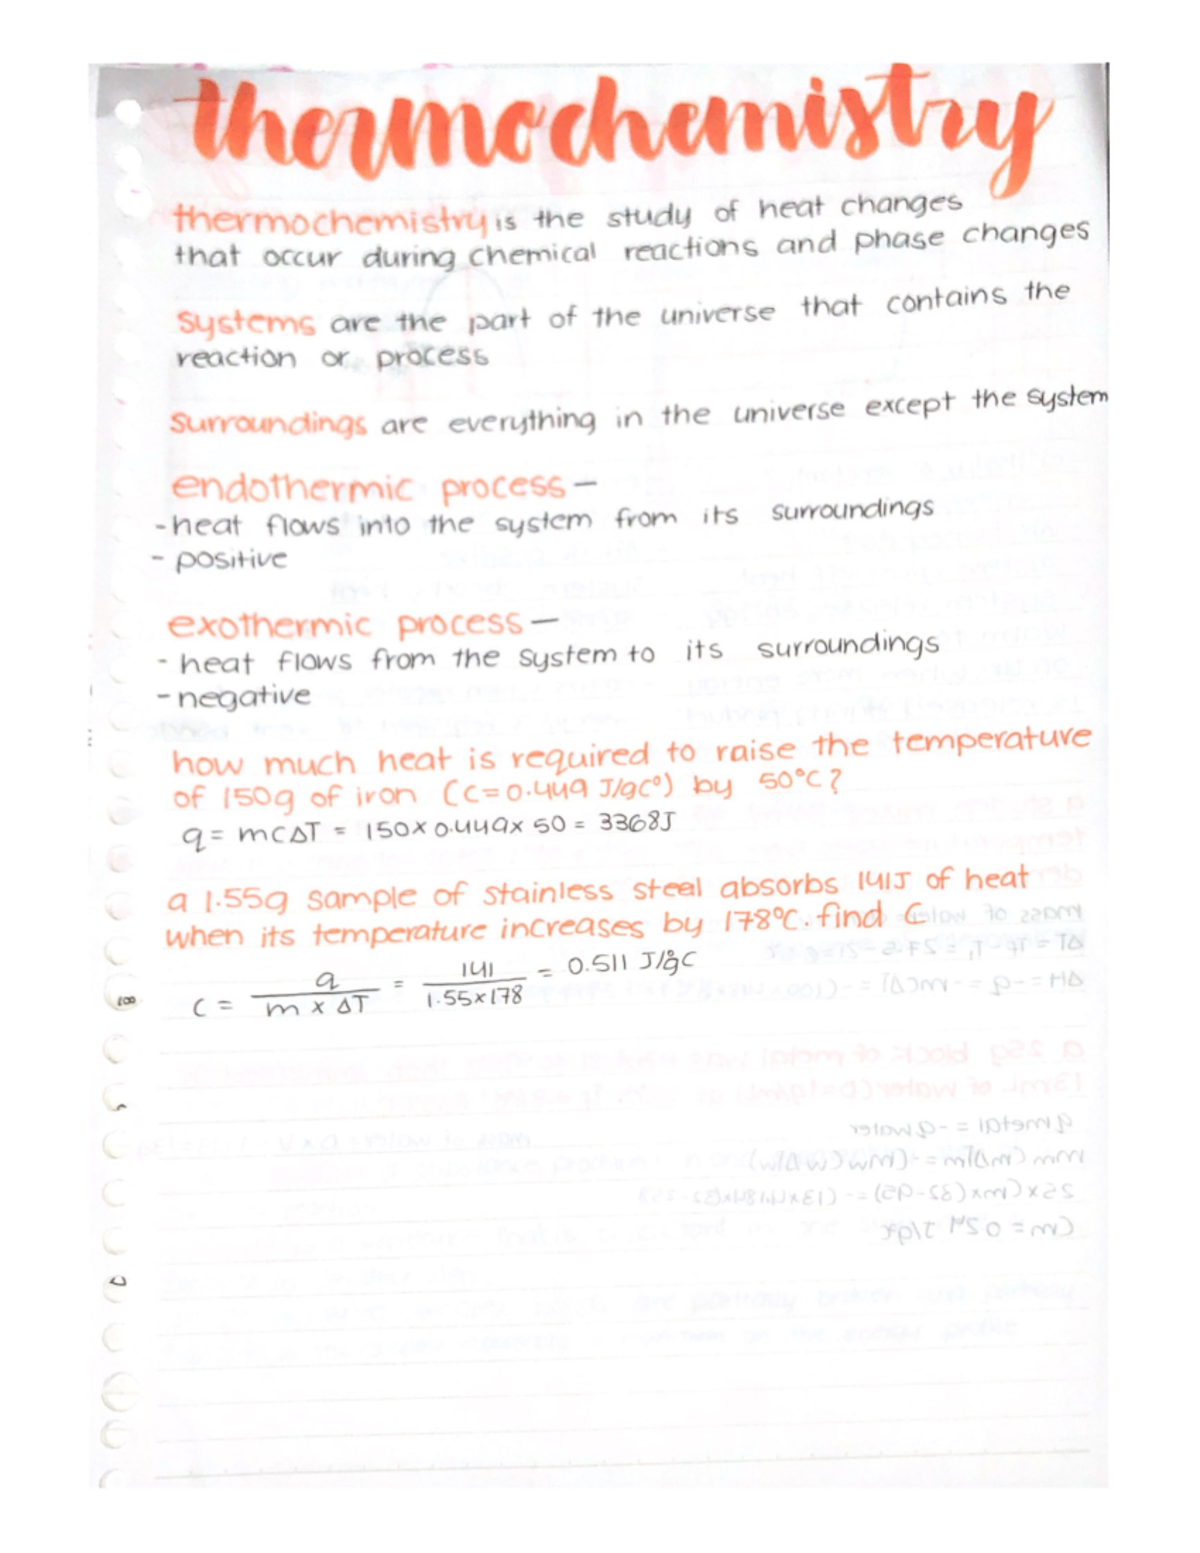 thermochemistry
thermochemistry is the study of heat changes
that occur during chemical reactions and phase changes
systems are the part of the universe that contains the
reaction or process
surroundings are everything in the universe except the system
endothermic process —
- heat flows into the system from its surroundings
- positive
exothermic process —
- heat flows from the system to its surroundings
- negative
how much heat is required to raise the temperature
of 150g of iron (c=0.449 J/gC°) by 50°C?
q = mCΔT = 150x0.449x 50 = 3368J
a 1.55g sample of stainless steel absorbs 141J of heat
when its temperature increases by 178°C. find C
C = q / m x ΔT = 141 / 1.55x178 = 0.511 J/g°C